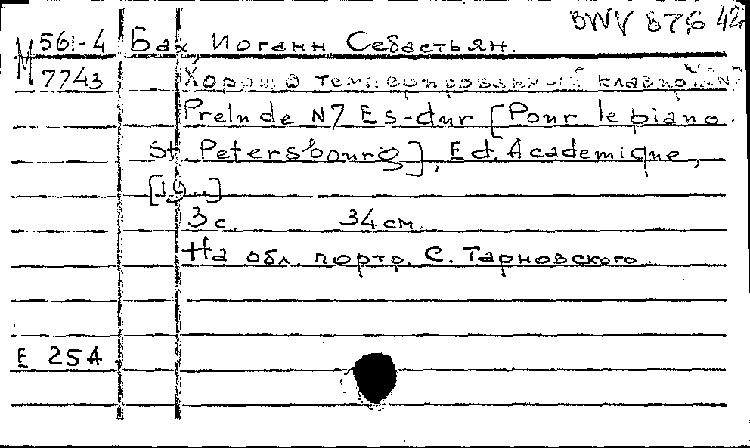 BWV 876 42
М 56-4 Бах, Иоганн Себастьян.
7743 Хорошо темперированный клавир. N7
Prelude N7 Es-dur [Pour le piano.
St. Petersbourg], Ed. Academique,
[19..]
3 с. 34 см.
На обл. портр. С. Тарновского.
E 254